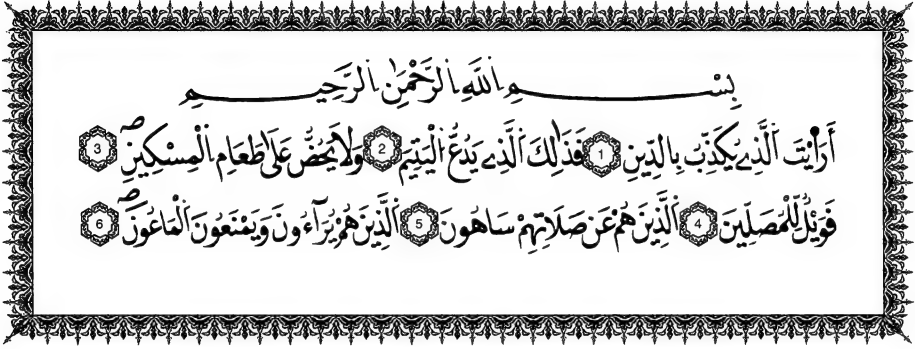 بِسْمِ اللَّهِ الرَّحْمَٰنِ الرَّحِيمِ
أَرَٰيْتَ الَّذِي يُكَذِّبُ بِالدِّينِ 1 فَذَٰلِكَ الَّذِي يَدُعُّ الْيَتِيمَ 2 وَلَا يَحُضُّ عَلَىٰ طَعَامِ الْمِسْكِينِ 3
فَوَيْلٌ لِّلْمُصَلِّينَ 4 الَّذِينَ هُمْ عَن صَلَاتِهِمْ سَاهُونَ 5 الَّذِينَ هُمْ يُرَآءُونَ وَيَمْنَعُونَ الْمَاعُونَ 6